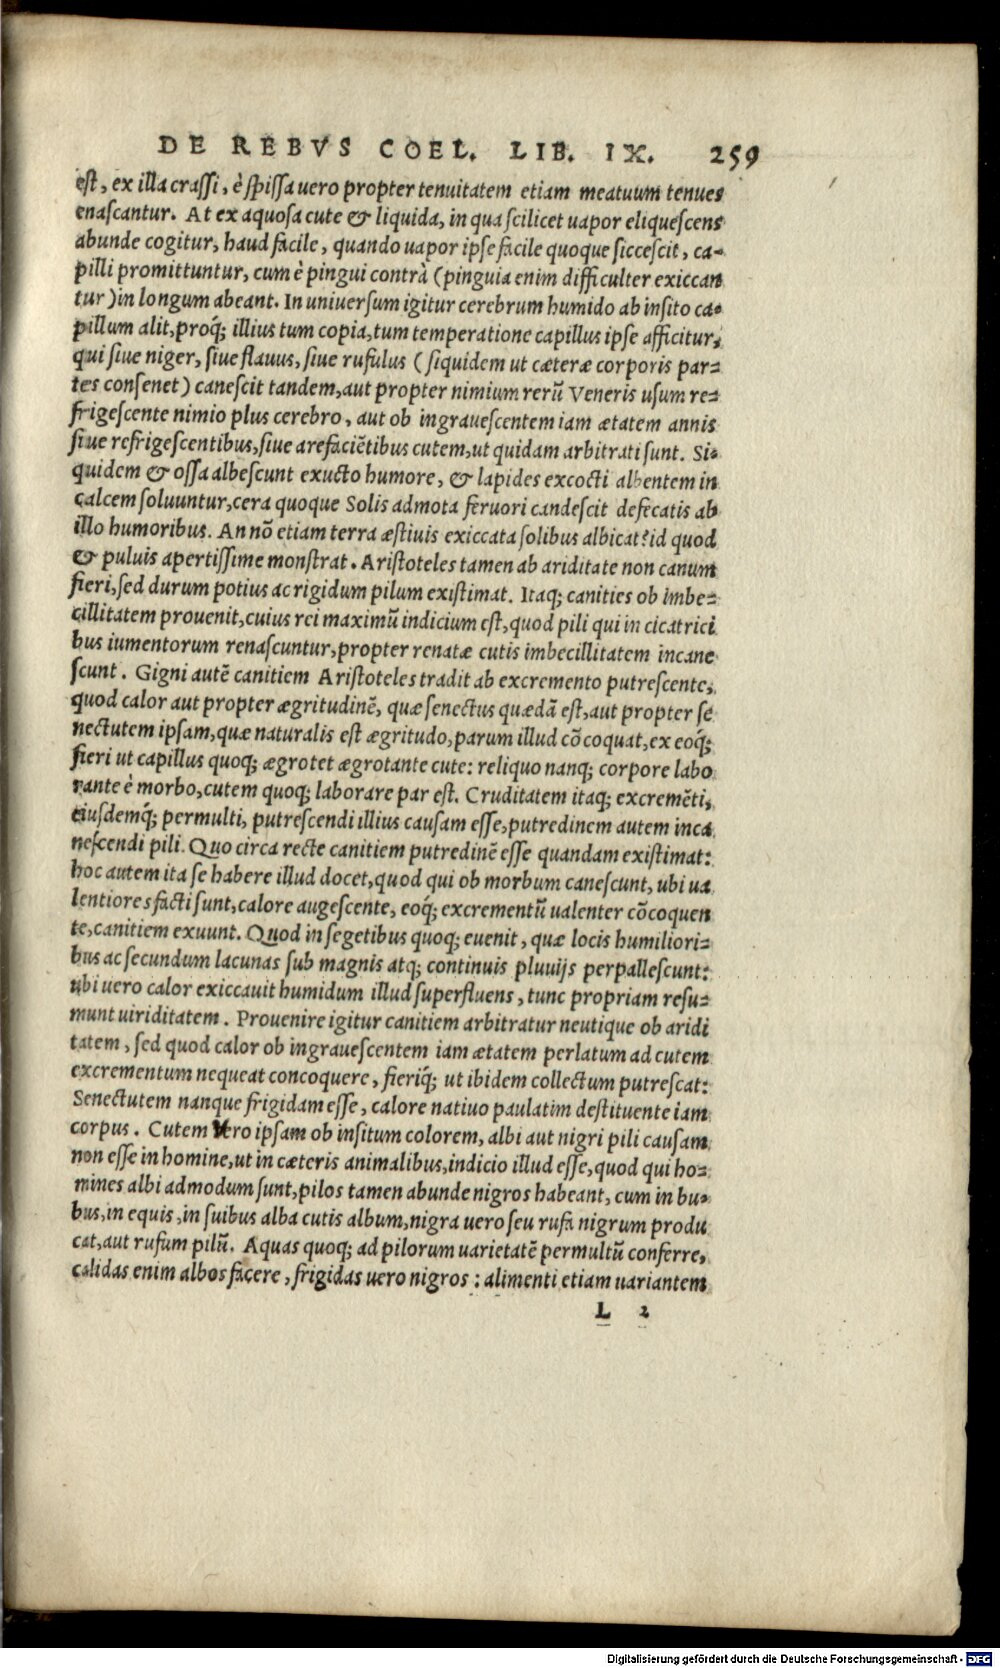 DE REBVS COEL. LIB. IX. 259
est, ex illa crassi, è spissa uero propter tenuitatem etiam meatuum tenues
enascantur. At ex aquosa cute & liquida, in qua scilicet uapor eliquescens
abunde cogitur, haud facile, quando uapor ipse facile quoque siccescit, ca-
pilli promittuntur, cum è pingui contrà (pinguia enim difficulter exiccan
tur) in longum abeant. In uniuersum igitur cerebrum humido ab insito ca-
pillum alit, proq́; illius tum copia, tum temperatione capillus ipse afficitur,
qui siue niger, siue flauus, siue rufulus (siquidem ut cæteræ corporis par-
tes consenet) canescit tandem, aut propter nimium rerũ Veneris usum re-
frigescente nimio plus cerebro, aut ob ingrauescentem iam ætatem annis
siue refrigescentibus, siue arefaciẽtibus cutem, ut quidam arbitrati sunt. Si-
quidem & ossa albescunt exucto humore, & lapides excocti albentem in
calcem soluuntur, cera quoque Solis admota feruori candescit defecatis ab
illo humoribus. An nõ etiam terra æstiuis exiccata solibus albicat? id quod
& puluis apertissime monstrat. Aristoteles tamen ab ariditate non canum
fieri, sed durum potius ac rigidum pilum existimat. Itaq; canities ob imbe-
cillitatem prouenit, cuius rei maximũ indicium est, quod pili qui in cicatrici
bus iumentorum renascuntur, propter renatæ cutis imbecillitatem incane
scunt. Gigni autẽ canitiem Aristoteles tradit ab excremento putrescente,
quod calor aut propter ægritudinẽ, quæ senectus quædã est, aut propter se
nectutem ipsam, quæ naturalis est ægritudo, parum illud cõcoquat, ex eoq́;
fieri ut capillus quoq; ægrotet ægrotante cute: reliquo nanq; corpore labo
rante è morbo, cutem quoq; laborare par est. Cruditatem itaq; excremẽti,
eiusdemq́; permulti, putrescendi illius causam esse, putredinem autem inca
nescendi pili. Quo circa recte canitiem putredinẽ esse quandam existimat:
hoc autem ita se habere illud docet, quod qui ob morbum canescunt, ubi ua
lentiores facti sunt, calore augescente, eoq́; excrementũ ualenter cõcoquen
te, canitiem exuunt. Quod in segetibus quoq; euenit, quæ locis humiliori-
bus ac secundum lacunas sub magnis atq; continuis pluuijs perpallescunt:
ubi uero calor exiccauit humidum illud superfluens, tunc propriam resu-
munt uiriditatem. Prouenire igitur canitiem arbitratur neutique ob aridi
tatem, sed quod calor ob ingrauescentem iam ætatem perlatum ad cutem
excrementum nequeat concoquere, fieriq́; ut ibidem collectum putrescat:
Senectutem nanque frigidam esse, calore natiuo paulatim destituente iam
corpus. Cutem uero ipsam ob insitum colorem, albi aut nigri pili causam
non esse in homine, ut in cæteris animalibus, indicio illud esse, quod qui ho-
mines albi admodum sunt, pilos tamen abunde nigros habeant, cum in bu-
bus, in equis, in suibus alba cutis album, nigra uero seu rufa nigrum produ
cat, aut rufum pilũ. Aquas quoq; ad pilorum uarietatẽ permultũ conferre,
calidas enim albos facere, frigidas uero nigros: alimenti etiam uariantem
L 2
Digitalisierung gefördert durch die Deutsche Forschungsgemeinschaft - DFG